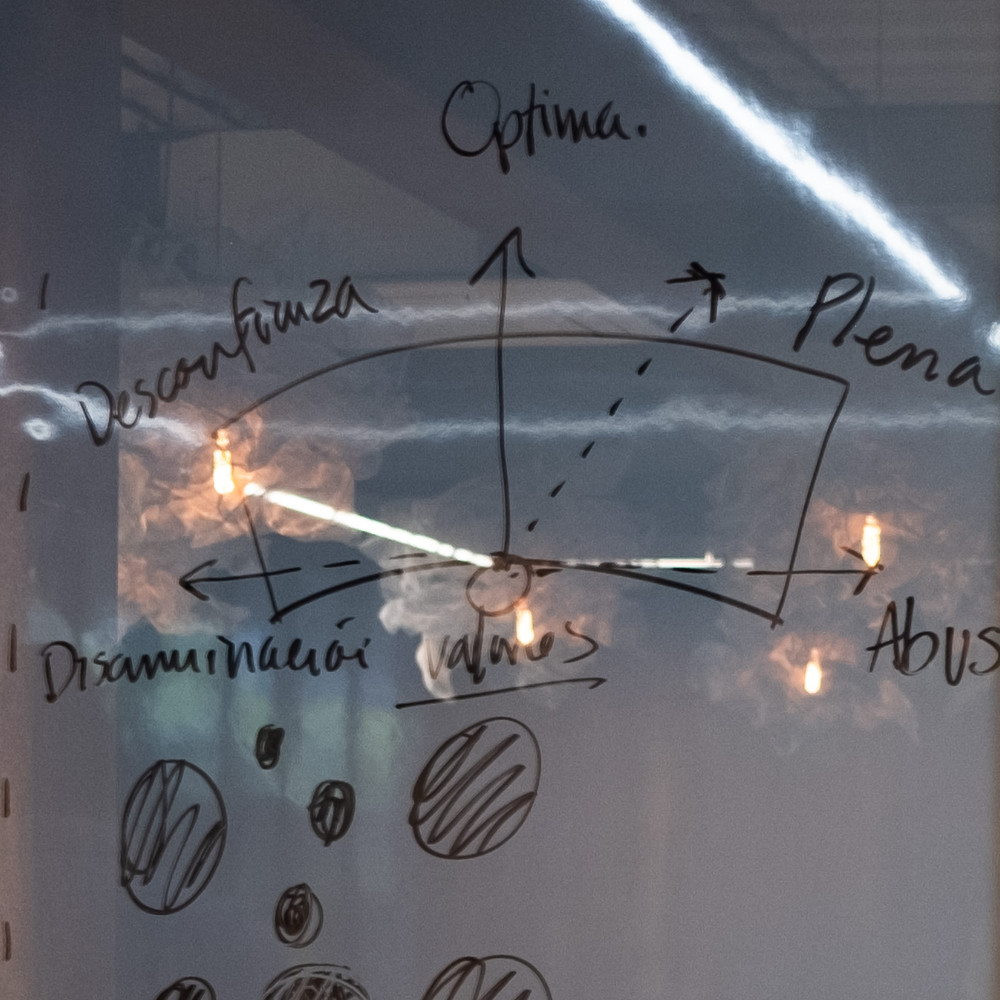 Optima.
Desconfianza
Plena
Discriminación
valores
Abus